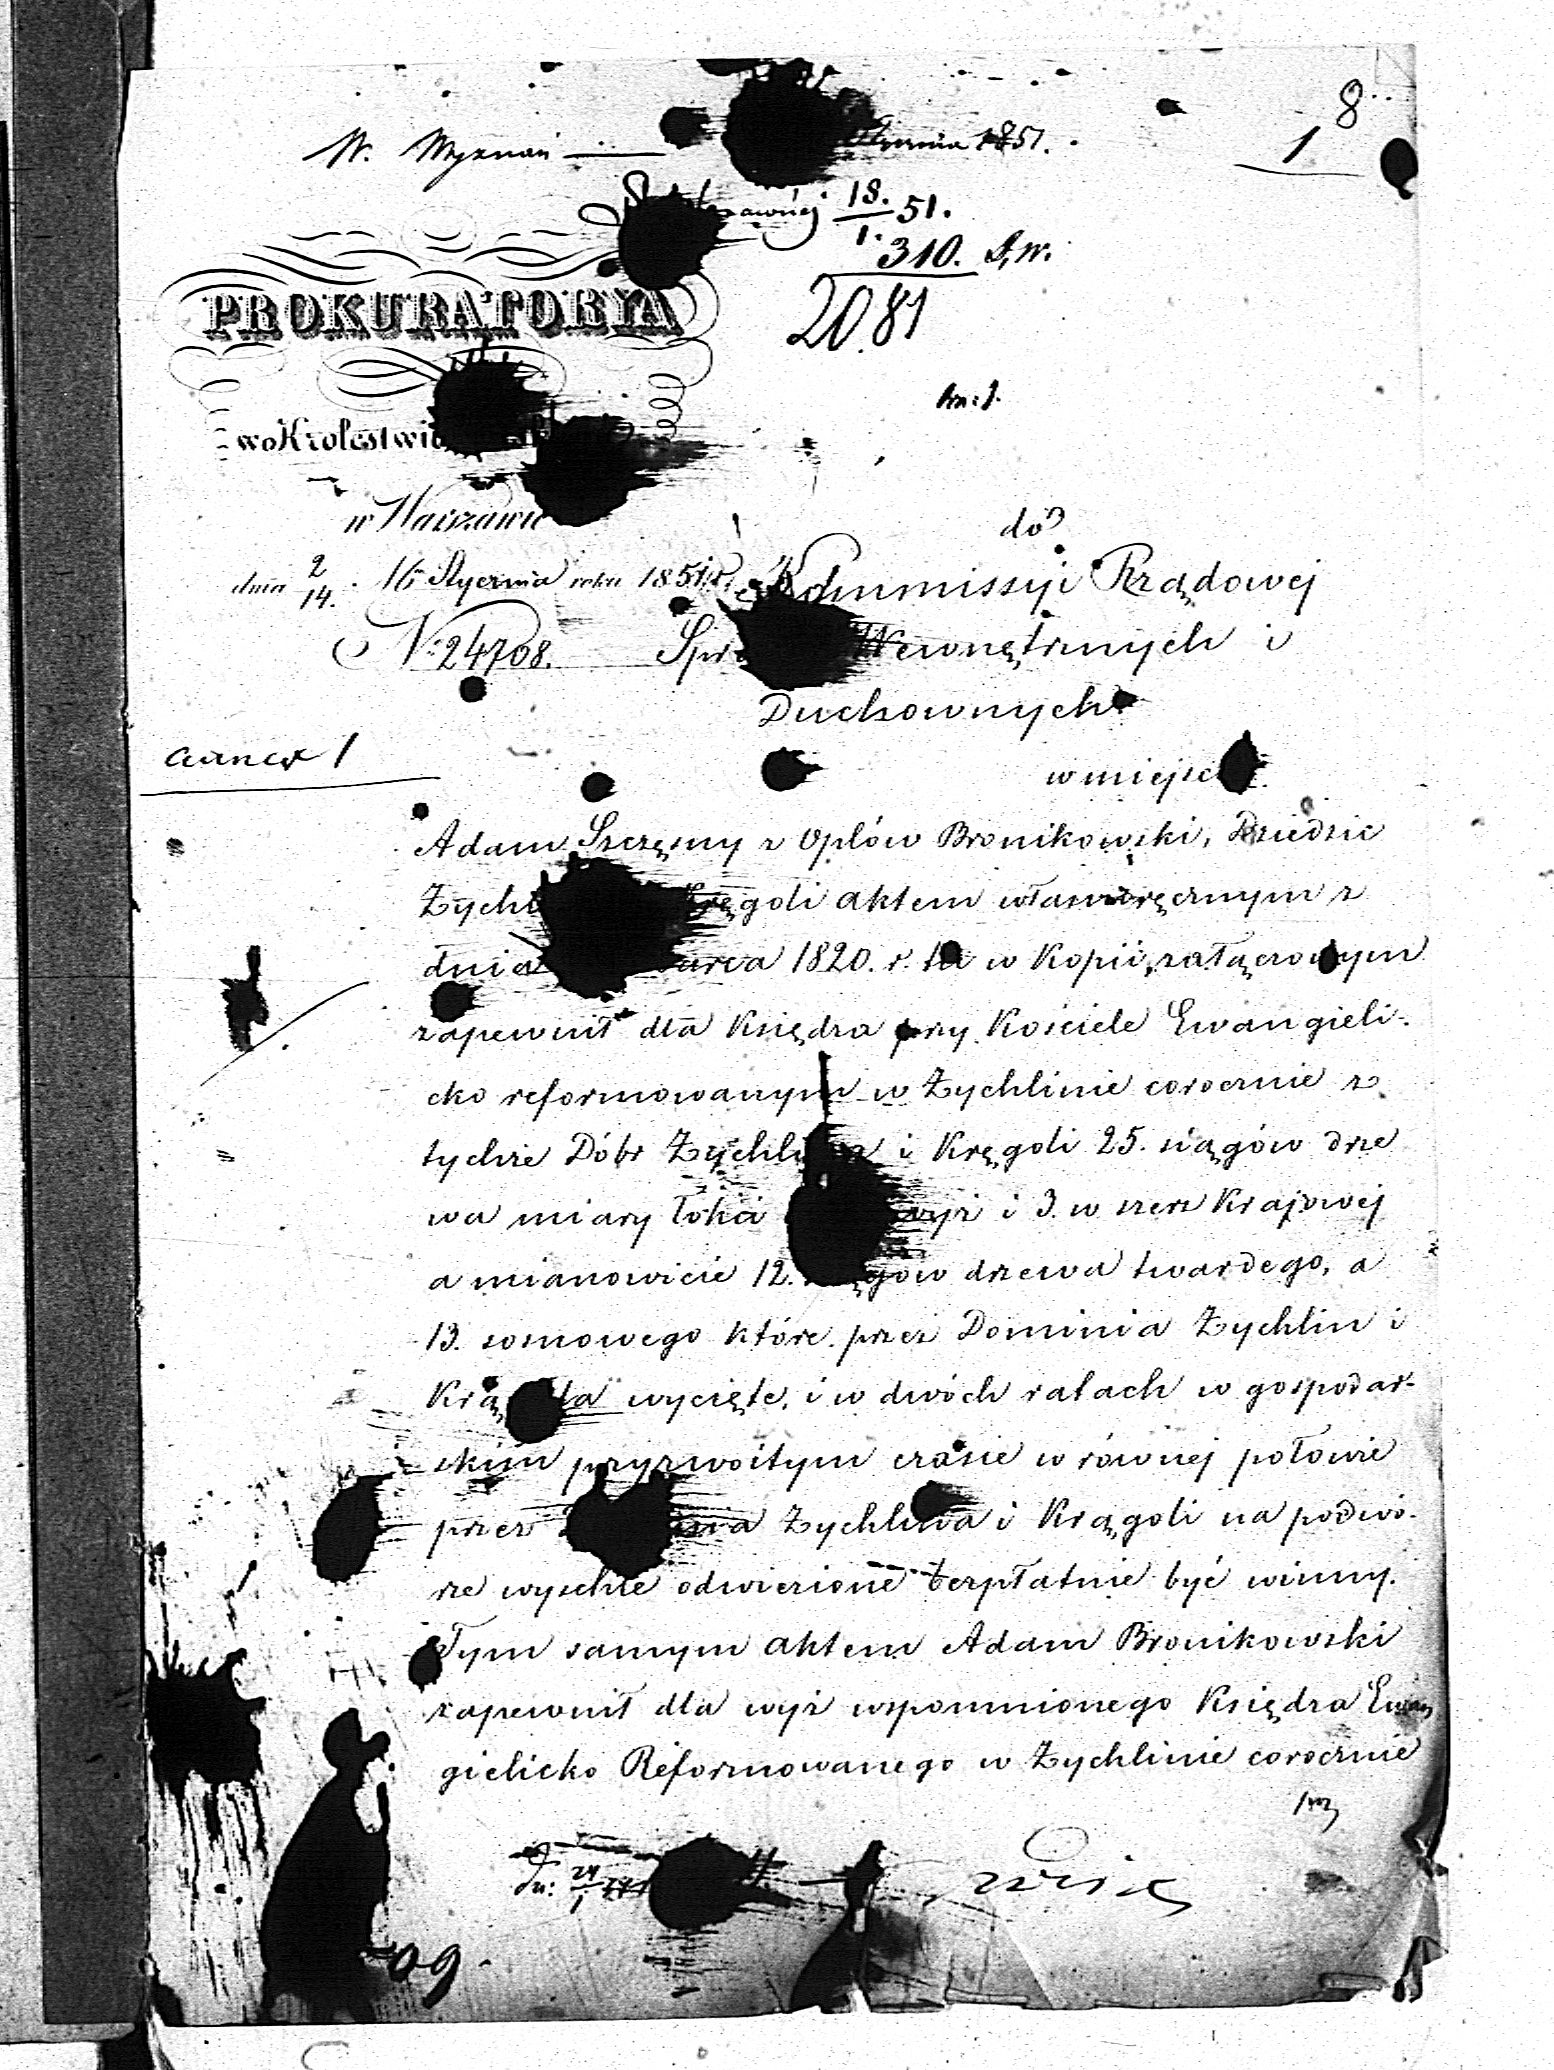 8
W. Wyznań 1851.
1
18./1. 51.
310. S, W.
2081
PROKURATORYA
w Krolestwie
w Warszawie
do
dnia 2/14. 16 Stycznia roku 1851 r.
Kommissyi Rządowej
Nº 24708.
Wewnętrznych i
Duchownych
annex 1
w miejscu
Adam Szczęsny z Oplów Bronikowski, Dziedzic
Kręgoli aktem własnoręcznym z
dnia Marca 1820. r. tu w Kopii załączonym
zapewnił dla Księdza przy Kościele Ewangieli-
cko reformowanym w Żychlinie corocznie z
tychże Dóbr Żychlina i Kręgoli 25. siągów drze
wa miary łokci wyż i 3. w szerz Krajowej
a mianowicie 12. siągów drzewa twardego, a
13. sosnowego które przez Dominia Żychlin i
wycięte, i w dwóch ratach w gospodar-
skim przyzwoitym czasie w równej połowie
przez Żychlina i Krągoli na podwó-
rze wyschłe odwiezione bezpłatnie być winny.
Tym samym aktem Adam Bronikowski
zapewnił dla wyż wspomnionego Księdza Ewan
gielicko Reformowanego w Żychlinie corocznie
09.